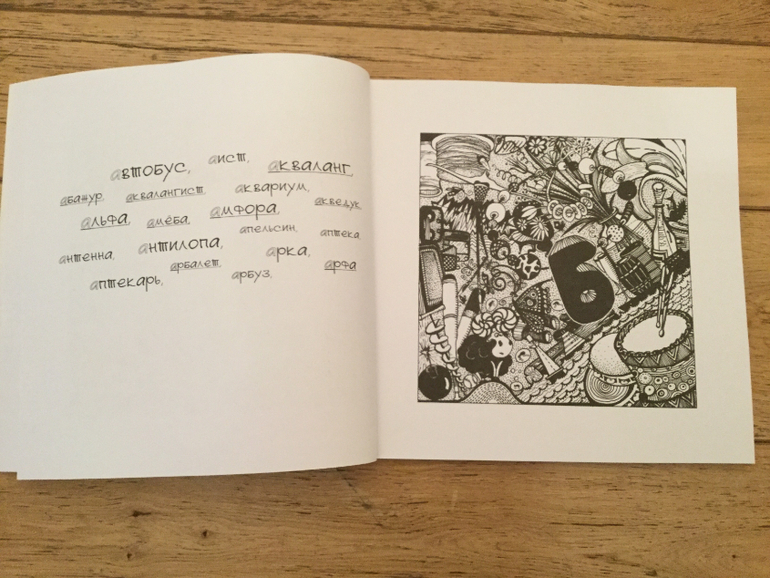 автобус, аист, акваланг,
абажур, аквалангист, аквариум,
альфа, амёба, амфора, акведук,
апельсин, аптека,
антенна, антилопа, арка,
арбалет, арфа
аптекарь, арбуз,
б